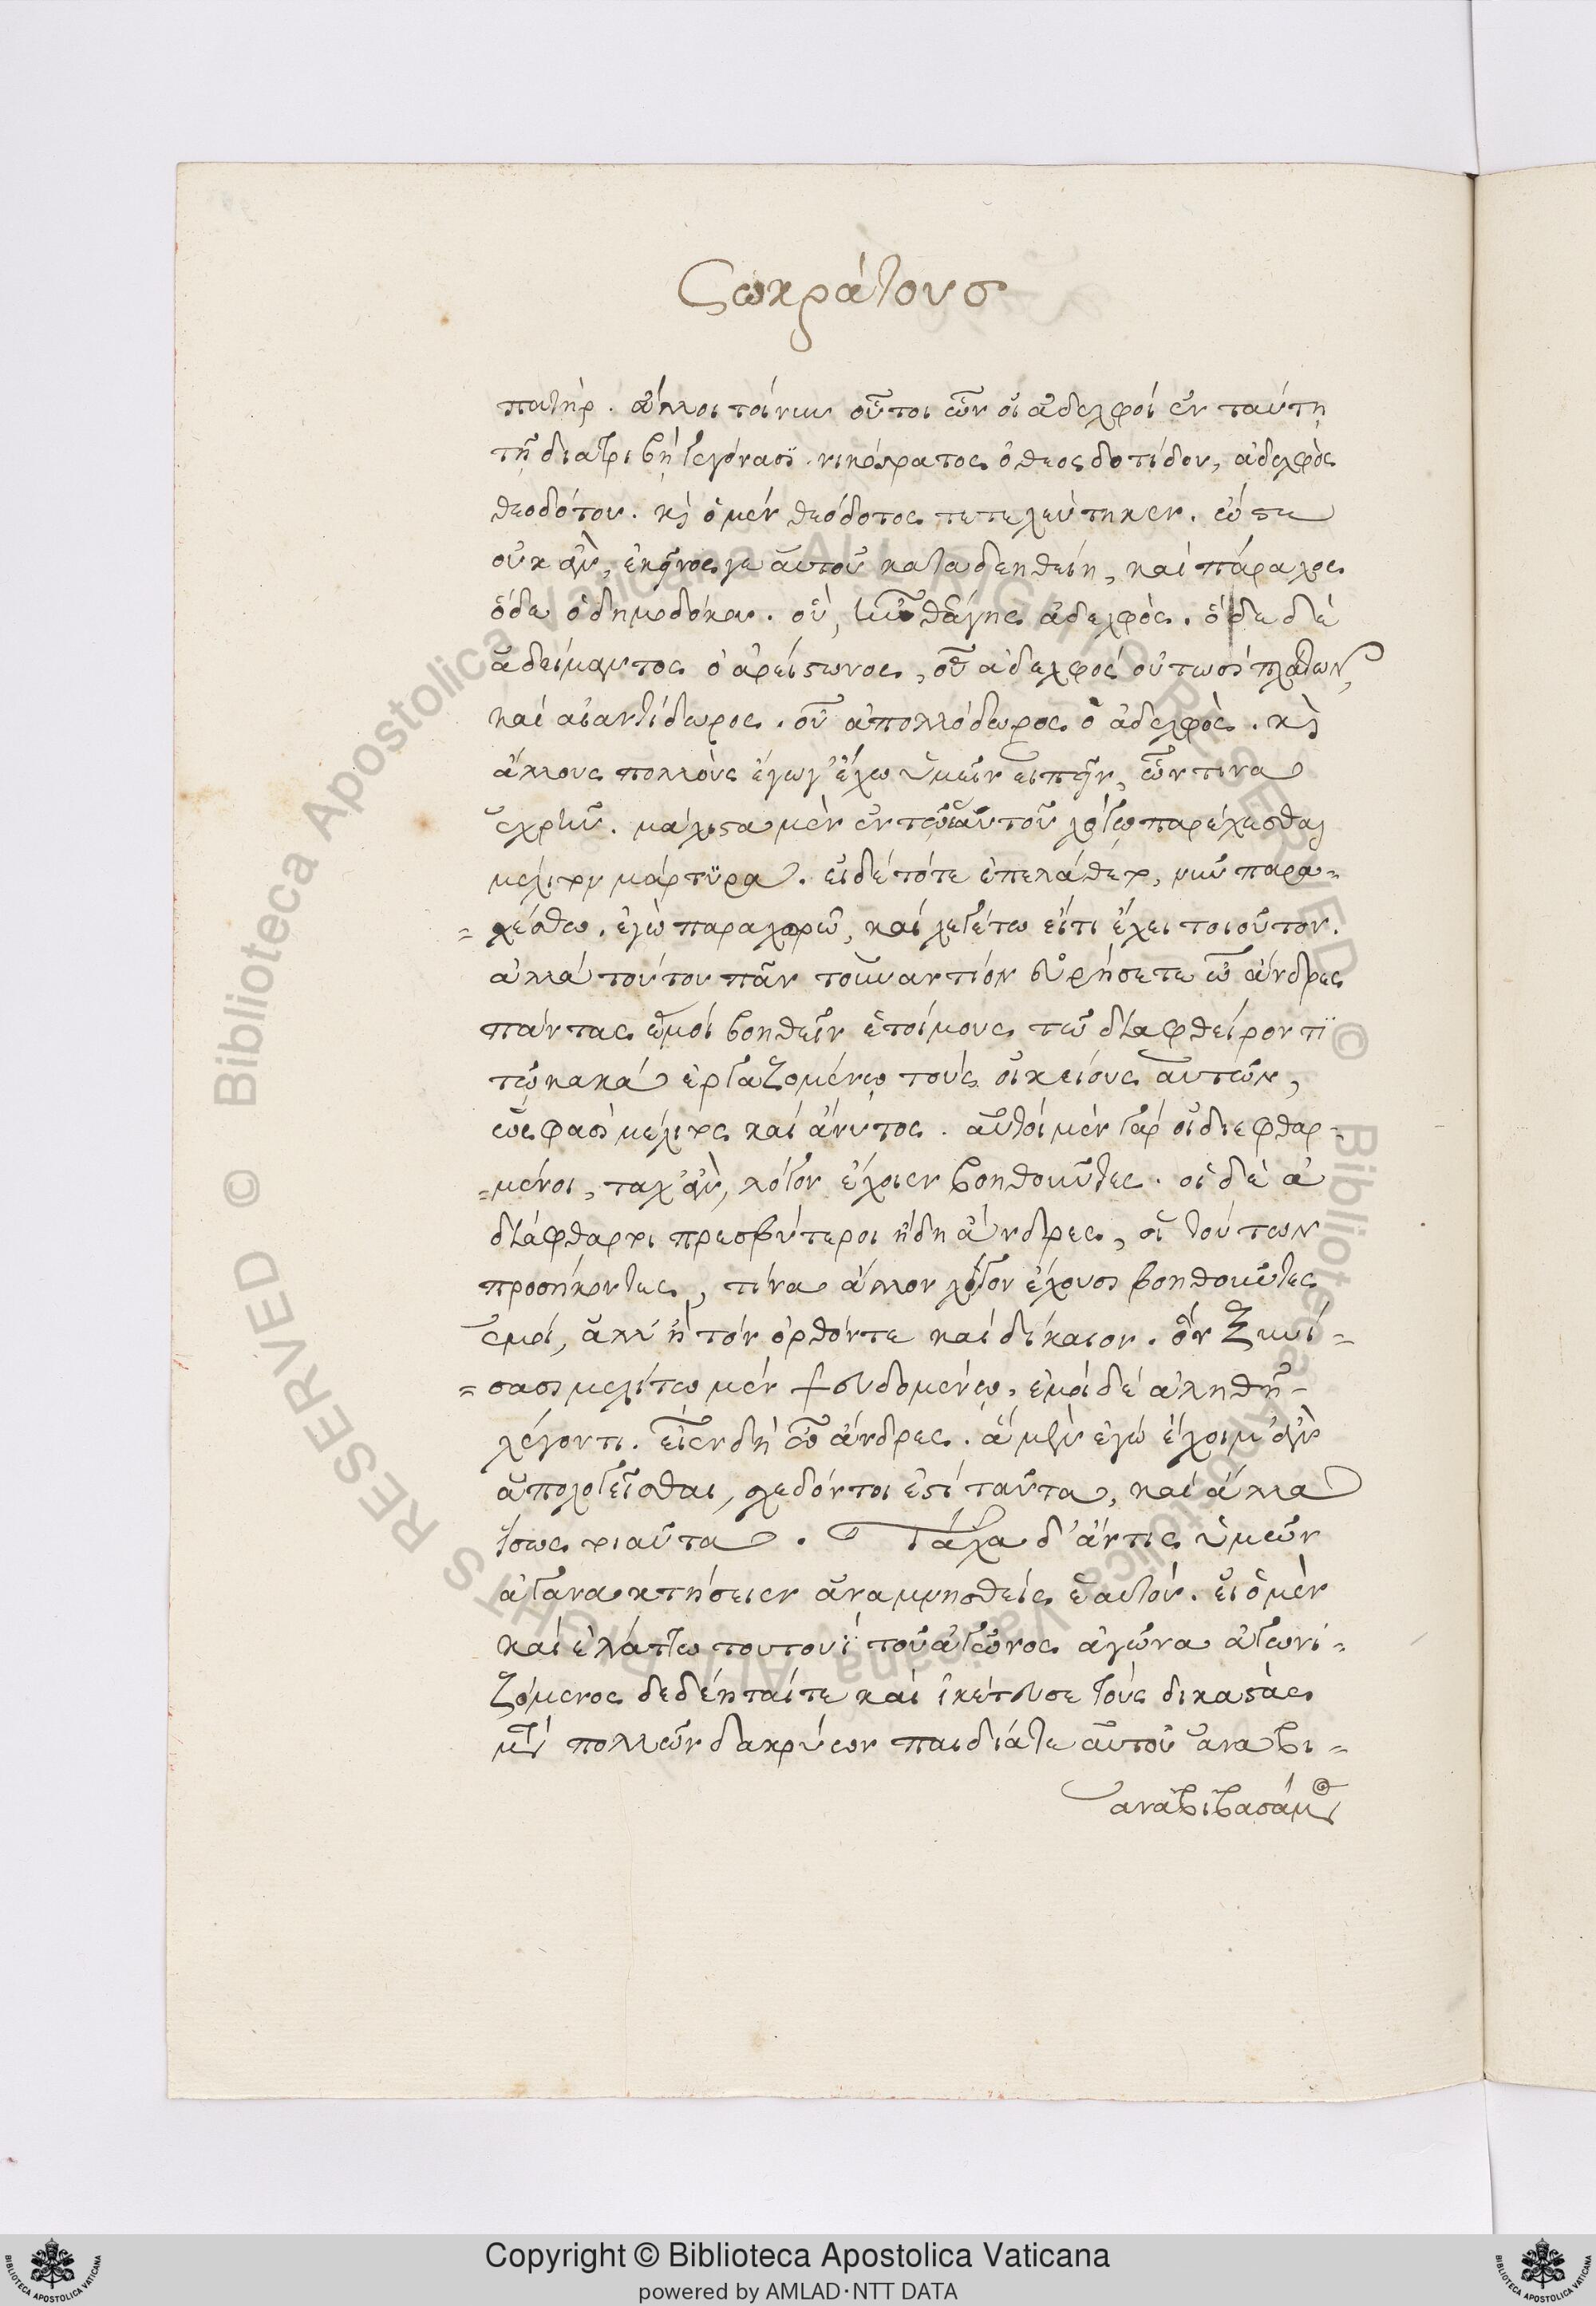 Σωκράτους
πατὴρ. ἄλλοι τοίνυν οὗτοι ὧν οἱ ἀδελφοί ἐν ταύτη
τῇ διατριβῇ γεγόνασϊ. νικόςρατος ὁ θεοσδοτίδου, ἀδελφὸς
θεοδότου. κỳ ὁ μέν θεόδοτος τετελεύτηκεν. ὥστε
οὐκ ἂν, ἐκεῖνος γε αὐτοῦ καταδεηθείη, καί πάραλος
ὅδε ὁ δημοδόκου. οὗ, ἦν θεάγης ἀδελφὸς. ὅδε δὲ
ἀδείμαντος ὁ ἀρίςωνος, οὗ ἀδελφός οὑτωσί πλάτων,
καί αἰαντίδωρος. οὗ ἀπολλόδωρος ὁ ἀδελφὸς. κỳ
ἄλλους πολλοὺς ἐγωγ' ἔχω ὑμεῖν εἰπεῖν, ὧν τινα
ἐχρῆν. μάλιςα μὲν ἐν τῷ ἑαυτοῦ λόγῳ παρέχεσθαι
μέλιτον μάρτϋρα. εἰ δέ τότε ἐπελάθετο, νῦν παρα=
=χέσθω. ἐγὼ παραχωρῶ, καί λεγέτω εἴτι ἔχει τοιοῦτον.
ἀλλά τούτου πᾶν τοὐναντίον εὑρήσετε ὦ ἄνδρες
πάντας ἐμοί βοηθεῖν ἑτοίμους τῶ διαφθείροντϊ
τῷ κακά ἐργαζομένῳ τούς οἰκείους αὐτῶν,
ὥς φασὶ μέλιτος καί ἄνυτος. αὐτοί μέν γάρ οἱ διεφθαρ=
=μένοι, ταχ' ἂν, λόγον ἔχοιεν βοηθοῦντες. οἱ δὲ ἀ
διάφθαρτοι πρεσβύτεροι ἤδη ἄνδρες, οἱ τούτων
προσήκοντες, τίνα ἄλλον λόγον ἔχουσι βοηθοῦντες
ἐμοί, ἀλλ' ἢ τόν ὀρθόντε καί δίκαιον. ὅν ξυνί=
=σασι μελίτῳ μέν ψευδομένῳ, ἐμοί δέ ἀληθῆ
λέγοντι. εἶεν δὴ ὦ ἄνδρες. ἅ μὲν ἐγώ ἔχοιμ' ἂν
ἀπολογεῖσθαι, σχεδόν τοι ἐςί ταῦτα, καί ἄλλα
ἴσως τοιαῦτα. Τάχα δ' ἄν τις ὑμῶν
ἀγανακτήσειεν ἀναμνησθείς ἑαυτόν. εἰ ὁ μὲν
καί ἐλάττω τουτουΐ τοῦ ἀγῶνος ἀγῶνα ἀγωνι=
ζόμενος δεδέηταίτε καὶ ἱκέτευσε τοὺς δικαςὰς
μετὰ πολλῶν δακρύων παιδίάτε αὐτοῦ ἀναβι=
ἀναβιβασάμενος